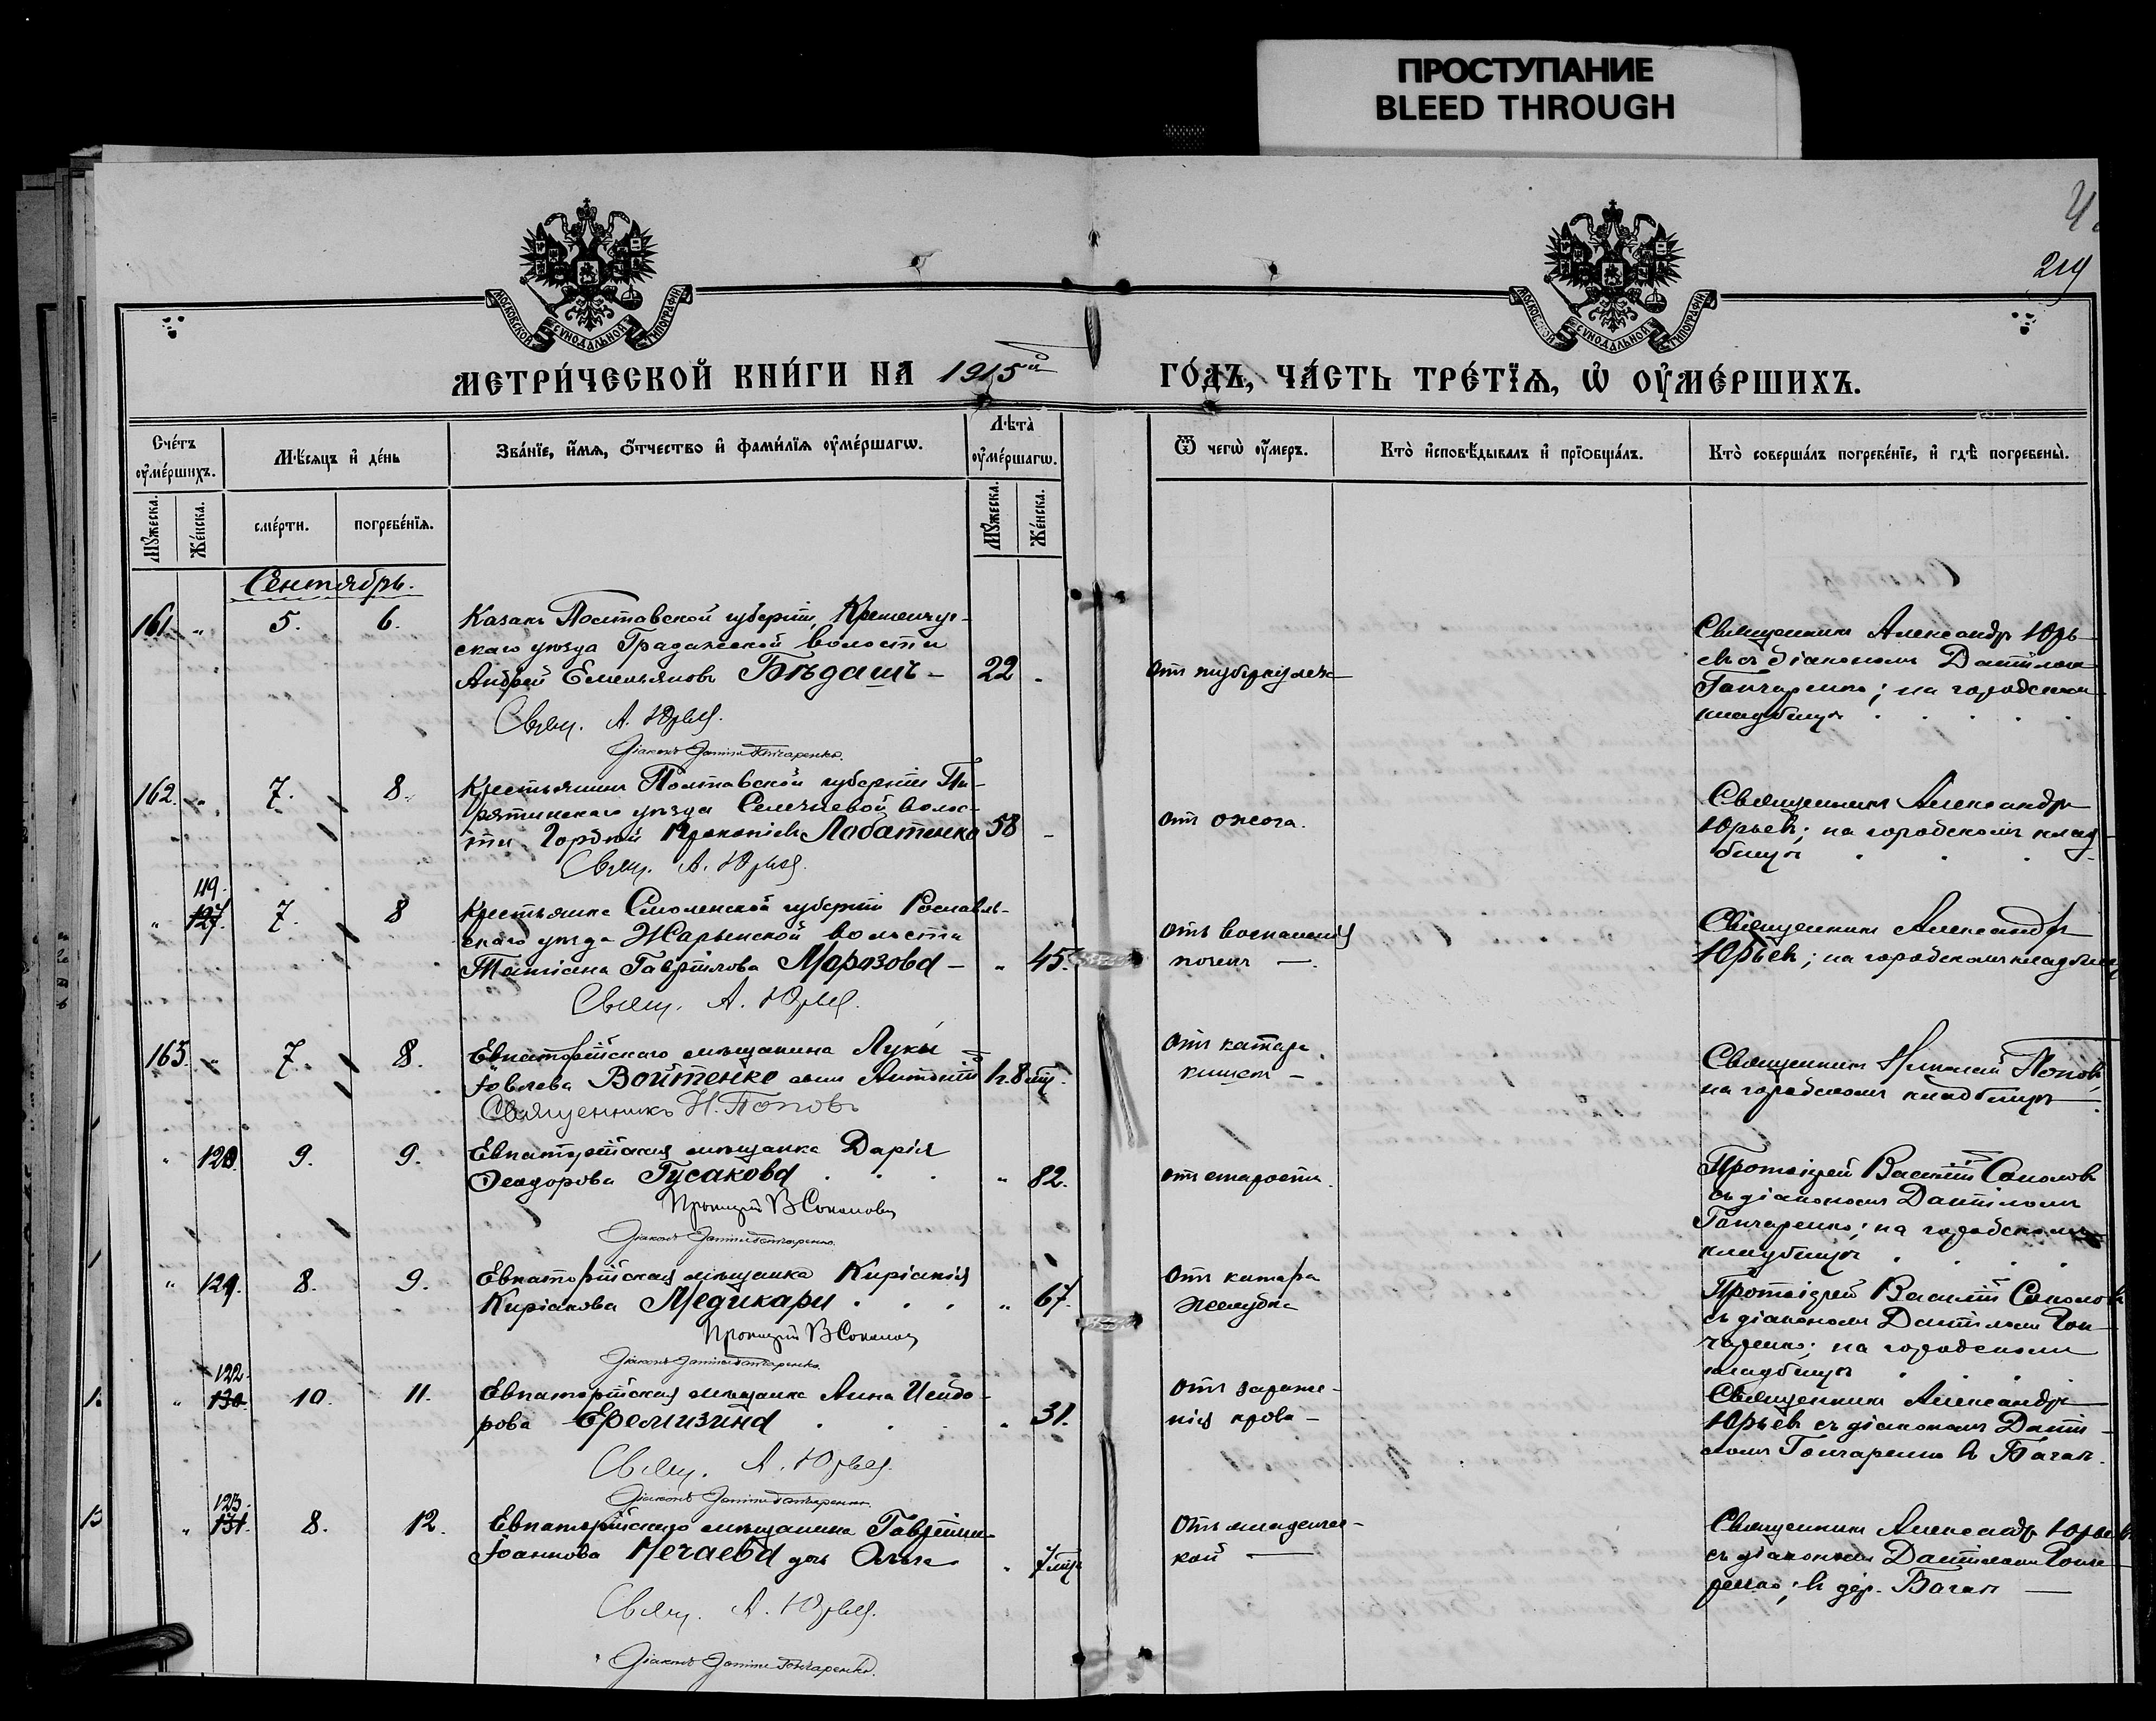 ПРОСТУПАНИЕ
BLEED THROUGH
219
МОСКОВСКОЙ СѴНОДАЛЬНОЙ ТИПОГРАФІИ
МОСКОВСКОЙ СѴНОДАЛЬНОЙ ТИПОГРАФІИ
МЕТРИ́ЧЕСКОЙ КНИ́ГИ НА 1915й ГО́ДЪ, ЧА́СТЬ ТРЕ́ТЇѦ, Ѡ҆ ОУ҆МЕ́РШИХЪ.
Сче́тъ оу҆ме́ршихъ.
Мѣ́сѧцъ и҆ де́нь
Зва́нїе, и҆́мѧ, ѻ҆́тчество и҆ фами́лїѧ оу҆ме́ршагѡ.
Лѣ́та̀ оу҆ме́ршагѡ.
Ѿ чегѡ̀ оу҆́меръ.
Кто̀ и҆сповѣ́дывалъ и҆ прїѡбща́лъ.
Кто̀ соверша́лъ погребе́нїе, и҆ гдѣ̀ погребены̀.
Мꙋ́жеска.
Же́нска.
сме́рти.
погребе́нїѧ.
Мꙋ́жеска.
Же́нска.
Сентябрь.
161. " 5. 6. Казакъ Полтавской губерніи, Кременчуг-
скаго уѣзда Градижской волости
Андрей Емельяновъ Бѣдашъ – 22 -
Свящ. А. Юрьев.
Діаконъ Даніилъ Гончаренко.
отъ туберкулеза
Священникъ Александръ Юрь-
евъ съ діакономъ Даніиломъ
Гончаренко; на городскомъ
кладбищѣ . . . .
162. " 7. 8. Крестьянинъ Полтавской губерніи Пи-
рятинскаго уѣзда волос-
ти Гордѣй Прокопіевъ Лобатенко 58 -
Свящ. А. Юрьев.
отъ ожога.
Священникъ Александръ
Юрьевъ; на городскомъ клад-
бищѣ . . .
119.
" 127. 7. 8 Крестьянка Смоленской губерніи Рославль-
скаго уѣзда Жарынской волости
Татіана Гаврілова Морозова – " 45.
Свящ. А. Юрьев.
отъ воспаленія
почекъ –.
Священникъ Александръ
Юрьевъ; на городскомъ кладбищѣ
163. " 7. 8. Евпаторійскаго мѣщанина Луки
Іовлева Войтенко сынъ Антоній 1г. 8 мц.
Священникъ Н. Поповъ
отъ катара
кишекъ –
Священникъ Николай Поповъ
на городскомъ кладбищѣ
" 120 9. 9. Евпаторійская мѣщанка Дарія
Ѳеодорова Гусакова . . . " 82.
Протоіерей В Соколовъ
Діаконъ Даніилъ Гончаренко.
отъ старости.
Протоіерей Василій Соколовъ
съ діакономъ Даніиломъ
Гончаренко; на городскомъ
кладбищѣ . . . .
" 121. 8. 9. Евпаторійская мѣщанка Киріакія
Киріакова Медикари . . . " 67.
Протоіерей В Соколовъ
Діаконъ Даніилъ Гончаренко.
отъ катара
желудка
Протоіерей Василій Соколовъ
съ діакономъ Даніиломъ Гон-
чаренко; на городскомъ
кладбищѣ . . .
122.
" 130. 10. 11. Евпаторійская мѣщанка Анна Исидо-
рова . . . " 31.
Свящ. А. Юрьев.
Діаконъ Даніилъ Гончаренко.
отъ зараже-
нія крови –
Священникъ Александръ
Юрьевъ съ діакономъ Даніи-
ломъ Гончаренко въ Багаѣ.
123.
" 131. 8. 12. Евпаторійскаго мѣщанина Гавріила
Іоаннова Нечаева дочь Ольга " 7 мц.
Свящ. А. Юрьев.
Діаконъ Даніилъ Гончаренко.
отъ младенчес-
кой –
Священникъ Александръ Юрьевъ
съ діакономъ Даніиломъ Гонча-
ренко; въ дер. Багаѣ –